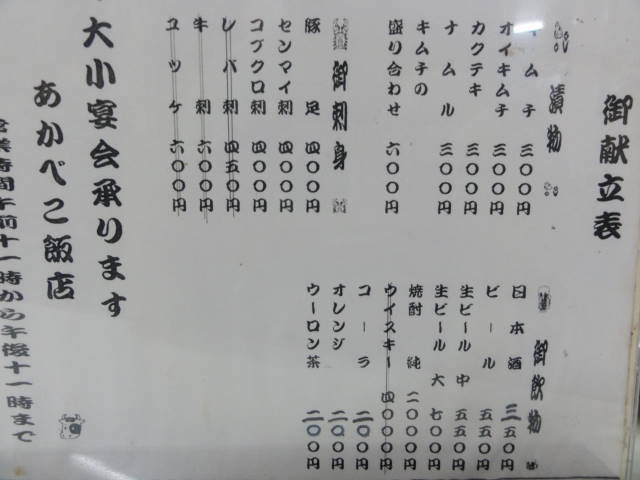 御献立表
漬物
キムチ 三〇〇円
オイキムチ 三〇〇円
カクテキ 三〇〇円
ナムル 三〇〇円
キムチの
盛り合わせ 六〇〇円
御刺身
豚足 四〇〇円
センマイ刺 四〇〇円
コブクロ刺 四〇〇円
レバ刺 四五〇円
牛刺 六〇〇円
ユッケ 六〇〇円
御飲物
日本酒 三五〇円
ビール 五五〇円
生ビール中 五五〇円
生ビール大 七〇〇円
焼酎 純 二〇〇〇円
ウイスキー 四〇〇〇円
コーラ 二〇〇円
オレンジ 二〇〇円
ウーロン茶 二〇〇円
大小宴会承ります
あかべこ飯店
営業時間午前十一時から午後十一時まで